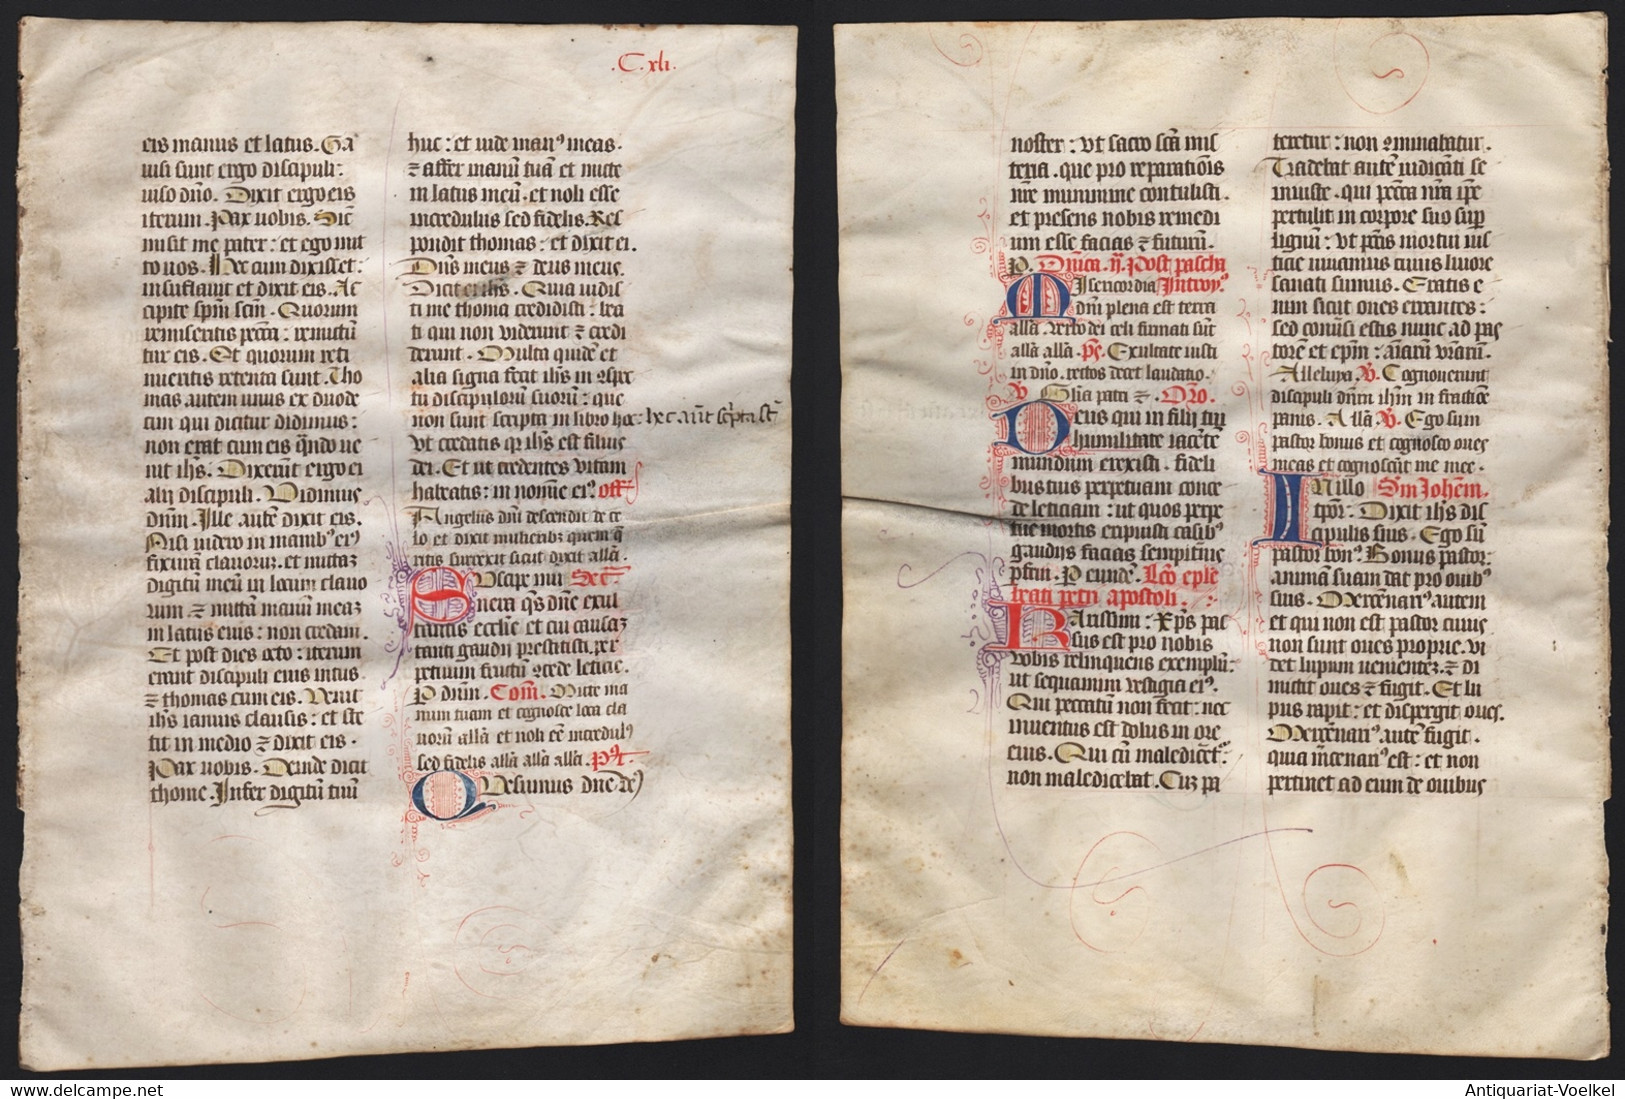 .C.xli.
eis manus et latus. Ga
uisi sunt ergo discipuli:
uiso dño. Dixit ergo eis
iterum. Pax uobis. Sic̄
misit me pater: et ego mit
to uos. Hec cum dixisset:
insufflauit et dixit eis. Ac
cipite sp̄m sc̄m. Quorum
remiseritis pc̄cā: remittūt
tur eis. Et quorum reti
nueritis retenta sunt. Tho
mas autem unus ex duode
cim qui dicitur didimus:
non erat cum eis qn̄do ue
nit ih̄s. Dixerūt ergo ei
alij discipuli. Vidimus
dn̄m. Ille autē dixit eis.
Nisi uidero in manibꝰ eiꝰ
fixurā clauorum. et mittaz
digitū meū in locum clauo
rum ⁊ mittā manū meaz
in latus eius: non credam.
Et post dies octo: iterum
erant discipuli eius intus
⁊ thomas cum eis. Venit
ih̄s ianuis clausis: et ste
tit in medio ⁊ dixit eis.
Pax uobis. Deinde dicit
thome. Infer digitū tuū
huc: et uide manꝰ meas.
⁊ affer manū tuā et mitte
in latus meū. et noli esse
incredulus sed fidelis. Res
pondit thomas: et dixit ei.
Dn̄s meus ⁊ deus meus.
Dicit ei ih̄s. Quia uidis
ti me thoma credidisti: bea
ti qui non viderunt ⁊ credi
derunt. Multa quidē et
alia signa fecit ih̄s in ꝯspec
tu discipulorū suorū: que
non sunt scripta in libro hoc: hec aūt sc̄pta st̄
Vt credatis qꝛ ih̄s est filius
dei. Et ut credentes vitam
habeatis: in nomīe eiꝰ. off̄
Angelus dn̄i descendit de ce
lo et dixit mulieribꝫ quem q̄
ritis surrexit sicut dixit allā.
Suscipe mu Sec̄.
nera qs̄ dn̄e exul
tantis ecclīe et cui causaz
tanti gaudij prestitisti. per
petuum fructū ꝯcede leticie.
P dn̄m. Com̄. Mitte ma
num tuam et cognosce loca cla
uorū allā et noli eē incredulꝰ
sed fidelis allā allā allā. Pꝰt.
Quesumus dn̄e deꝰ
noster: vt sacro sc̄ā mis
teria. que pro reparatiōis
nr̄e munimine contulisti.
et presens nobis remedi
um esse facias ⁊ futurū.
P. Dn̄ica .ij. Post pascha
Misericordia Introyꝰ.
dn̄i plena est terra
allā. verbo dei celi firmati sūt
allā allā. pš. Exultate iusti
in dn̄o. rectos decet laudatio.
V Glīa patri ⁊. Or̄o.
Deus qui in filij tui
humilitate iacētē
mundum erexisti. fideli
bus tuis perpetuam conce
de leticiam: ut quos perpe
tue mortis eripuisti casibꝰ
gaudijs facias sempitnīs
pfrui. P eundē. Lc̄o eplē
beati petri apostoli.
Karissimi: Xp̄s pas
sus est pro nobis
vobis relinquens exemplū:
ut sequamini vestigia eiꝰ.
Qui peccatū non fecit: nec
inuentus est dolus in ore
eius. Qui cū malediceret:
non maledicebat. Cuz pa
teretur: non ꝯminabatur.
Tradebat autē iudicāti se
iniuste. qui pcc̄ā nr̄ā ip̄e
pertulit in corpore suo supꝛ
lignū: vt pcc̄is mortui ius
ticie uiuamus cuius liuore
sanati sumus. Eratis e
nim sicut oues errantes:
sed conūsi estis nunc ad pas
torē et epm̄: aīarū vr̄arū.
Alleluya. V. Cognouerunt
discipuli dn̄m ih̄m in fractiōe
panis. Allā V. Ego sum
pastor bonus et cognosco oues
meas et cognoscūt me mee.
In illo Sm̄ Johēm.
tp̄r: Dixit ih̄s dis
cipulis suis. Ego sū
pastor bonꝰ. Bonus pastor:
animā suam dat pro ouibꝰ
suis. Mercēnariꝰ autem
et qui non est pastor cuius
non sunt oues proprie. vi
det lupum uenientez. ⁊ di
mittit oues ⁊ fugit. Et lu
pus rapit: et dispergit oues.
Mercēnariꝰ autē fugit.
quia mercēnariꝰ est: et non
pertinet ad eum de ouibus
Antiquariat-Voelkel